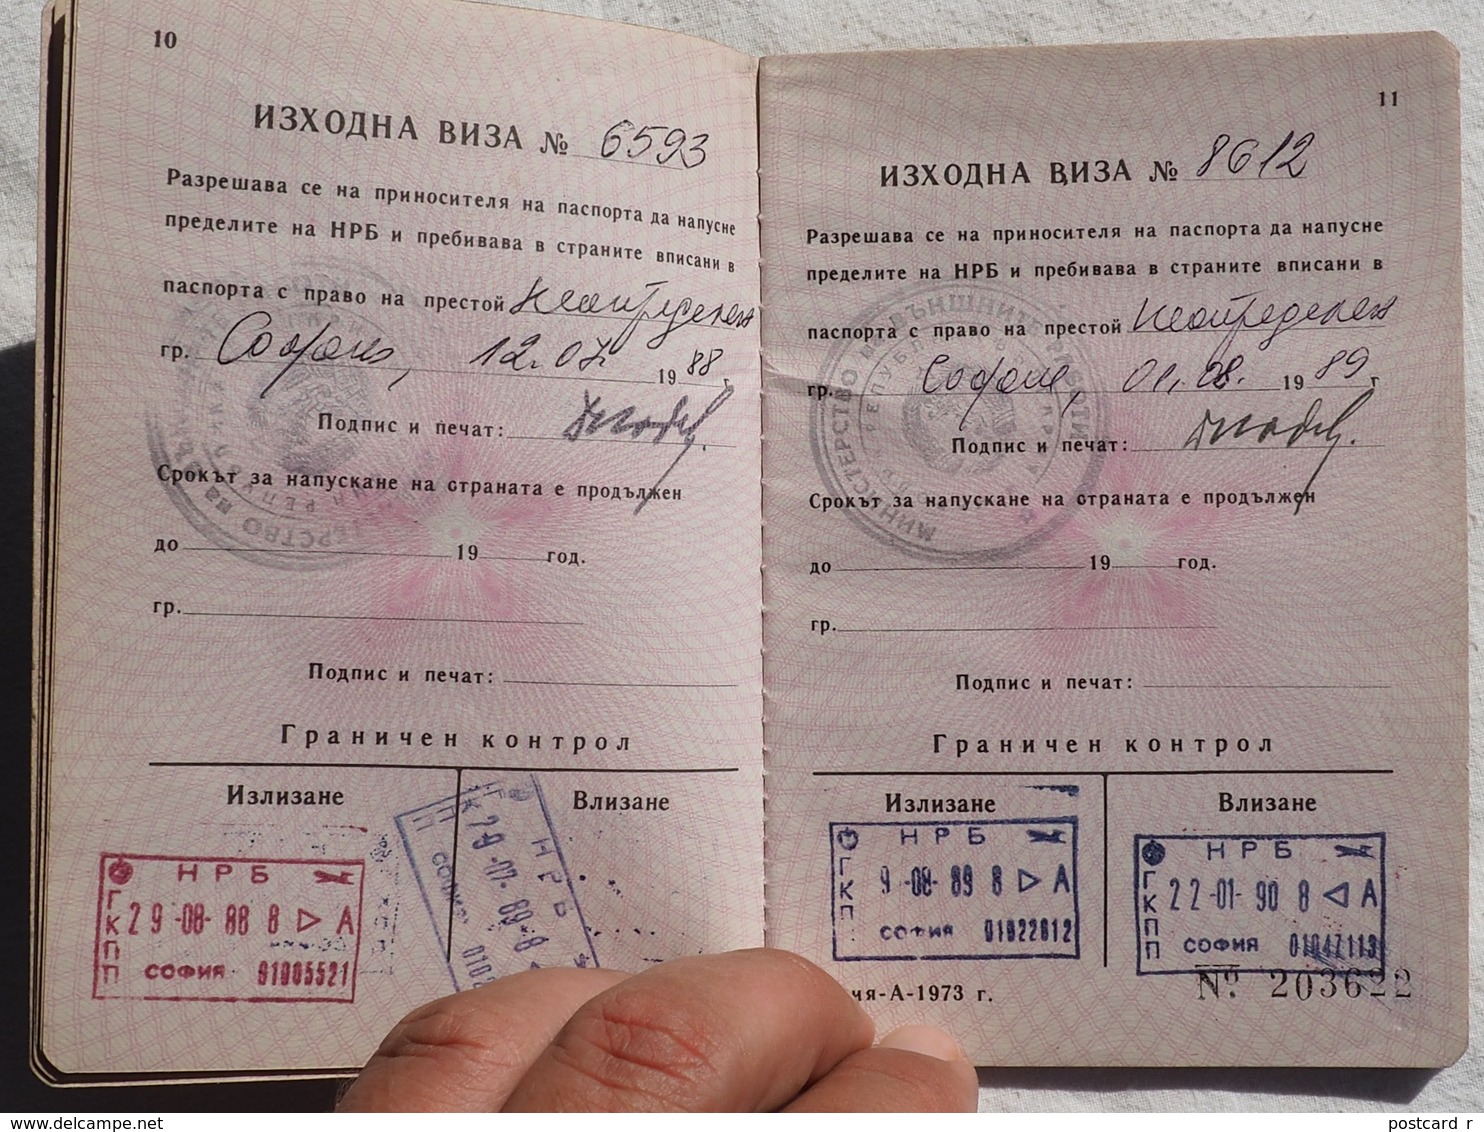 10
ИЗХОДНА ВИЗА № 6593
Разрешава се на приносителя на паспорта да напусне
пределите на НРБ и пребивава в страните вписани в
паспорта с право на престой неопределен
гр. София, 12.07. 1988 г.
Подпис и печат:
Срокът за напускане на страната е продължен
до 19 год.
гр.
Подпис и печат:
Граничен контрол
Излизане Влизане
НРБ
ГКПП
29-08-88 8 А
СОФИЯ 01005521
НРБ
29-07-89 8
СОФИЯ
11
ИЗХОДНА ВИЗА № 8612
Разрешава се на приносителя на паспорта да напусне
пределите на НРБ и пребивава в страните вписани в
паспорта с право на престой неопределен
гр. София, 01.08. 1989 г
Подпис и печат:
Срокът за напускане на страната е продължен
до 19 год.
гр.
Подпис и печат:
Граничен контрол
Излизане Влизане
НРБ
ГКП
9-08-89 8 А
СОФИЯ 01022012
НРБ
ГКПП
22-01-90 8 А
СОФИЯ 01047113
-А-1973 г.
№ 203622
http://www.delcampe.net
postcard_r